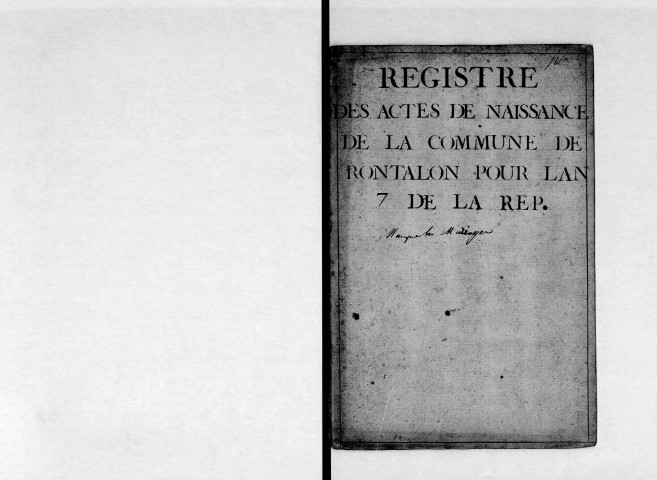 REGISTRE
DES ACTES DE NAISSANCE
DE LA COMMUNE DE
RONTALON POUR LAN
7 DE LA REP.
Manque les Mariages